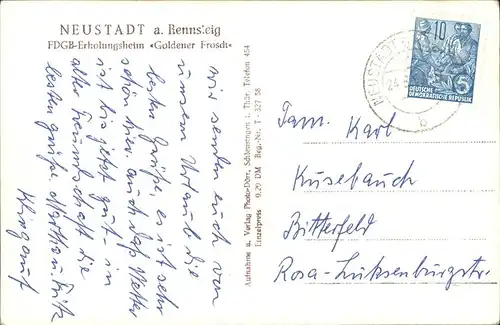 NEUSTADT a. Rennsteig
FDGB-Erholungsheim «Goldener Frosch»
wir senden euch von
unserm Urlaub die
besten Grüße es ist sehr
schön hier. auch das Wetter
ist bis jetzt gut - in
alter Freundschaft die
besten grüße Martha u. Fritz
Aufnahme u. Verlag Photo-Dörr, Schleusingen i. Thür. Telefon 454
Einzelpreis 0.20 DM Reg.-Nr. T-327 58
10
5
DEUTSCHE
DEMOKRATISCHE REPUBLIK
NEUSTADT
b
Fam. Karl
Kusebauch
Bitterfeld
Rosa-Luksenburgstr.